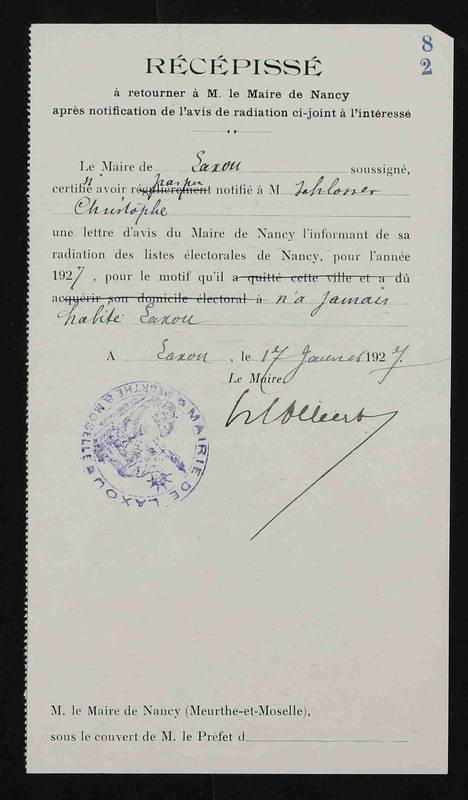 8
2
RÉCÉPISSÉ
à retourner à M. le Maire de Nancy
après notification de l'avis de radiation ci-joint à l'intéressé
Le Maire de Laxou soussigné,
certifie n' avoir régulièrement pas pu notifié à M Schlosser
Christophe
une lettre d'avis du Maire de Nancy l'informant de sa
radiation des listes électorales de Nancy, pour l'année
1927, pour le motif qu'il a quitté cette ville et a dû
acquérir son domicile électoral à n'a jamais
habité Laxou
A Laxou, le 17 Janvier 1927
Le Maire,
MAIRIE DE LAXOU
MEURTHE & MOSELLE
M. le Maire de Nancy (Meurthe-et-Moselle),
sous le couvert de M. le Préfet d